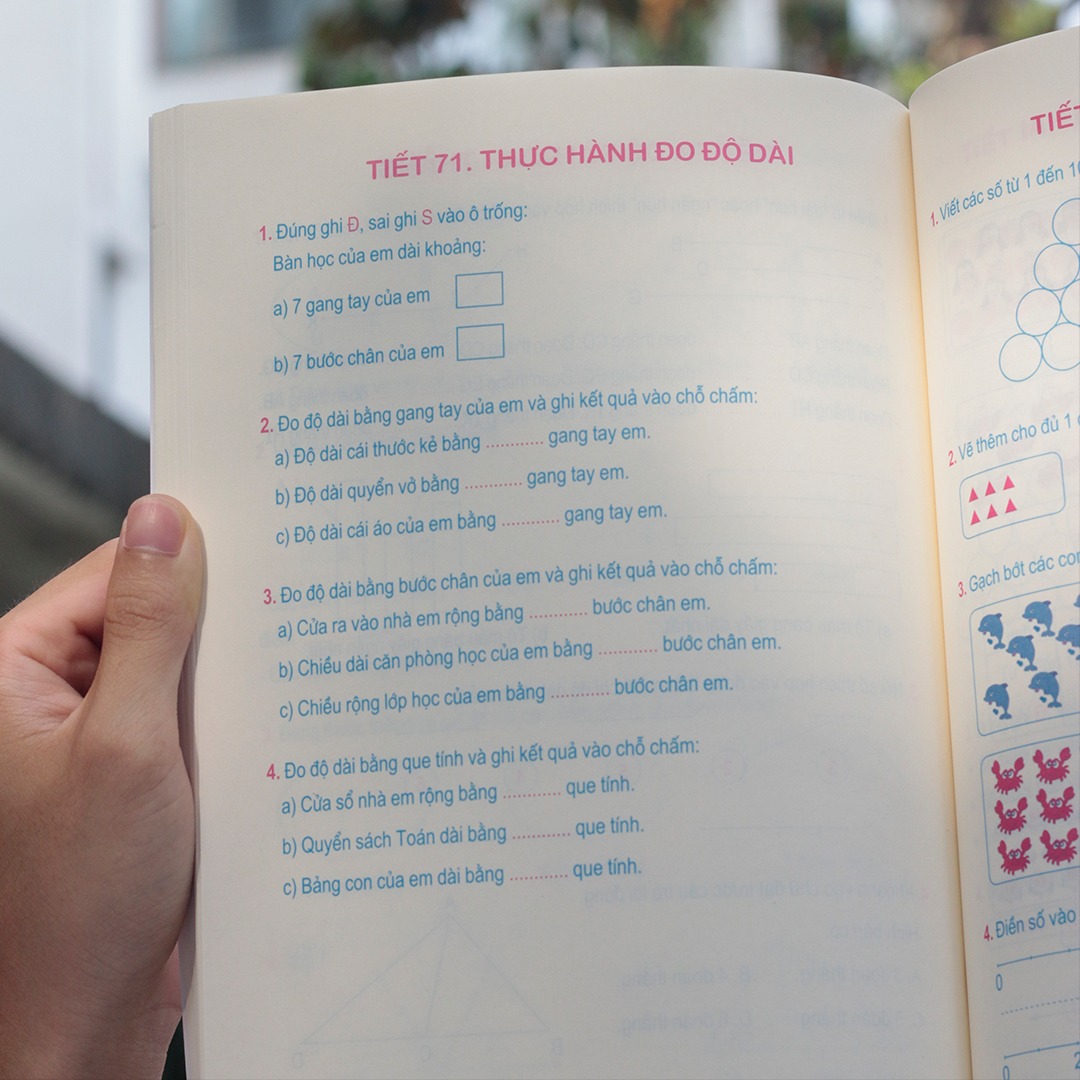 TIẾT 71. THỰC HÀNH ĐO ĐỘ DÀI
1. Đúng ghi Đ, sai ghi S vào ô trống:
Bàn học của em dài khoảng:
a) 7 gang tay của em
b) 7 bước chân của em
2. Đo độ dài bằng gang tay của em và ghi kết quả vào chỗ chấm:
a) Độ dài cái thước kẻ bằng ............ gang tay em.
b) Độ dài quyển vở bằng ............ gang tay em.
c) Độ dài cái áo của em bằng ............ gang tay em.
3. Đo độ dài bằng bước chân của em và ghi kết quả vào chỗ chấm:
a) Cửa ra vào nhà em rộng bằng ............ bước chân em.
b) Chiều dài căn phòng học của em bằng ............ bước chân em.
c) Chiều rộng lớp học của em bằng ............ bước chân em.
4. Đo độ dài bằng que tính và ghi kết quả vào chỗ chấm:
a) Cửa sổ nhà em rộng bằng ............ que tính.
b) Quyển sách Toán dài bằng ............ que tính.
c) Bảng con của em dài bằng ............ que tính.
TIẾT
1. Viết các số từ 1 đến
2. Vẽ thêm cho đủ 1
3. Gạch bớt các
4. Điền số vào
0
0